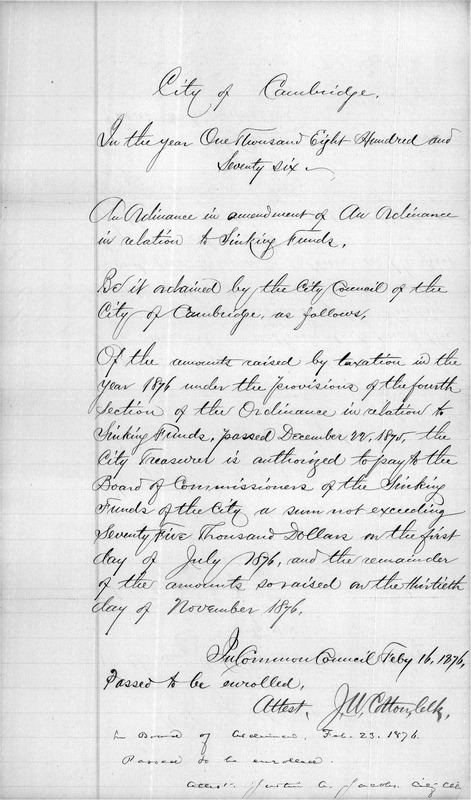 City of Cambridge.
In the year One Thousand Eight Hundred and
Seventy six
An Ordinance in amendment of An Ordinance
in relation to Sinking Funds.
Be it ordained by the City Council of the
City of Cambridge, as follows,
Of the amounts raised by taxation in the
year 1876 under the provisions of the fourth
Section of the Ordinance in relation to
Sinking Funds, passed December 22, 1875, the
City Treasurer is authorized to pay to the
Board of Commissioners of the Sinking
Funds of the City a sum not exceeding
Seventy Five Thousand Dollars on the first
day of July 1876, and the remainder
of the amounts so raised on the thirtieth
day of November 1876.
In Common Council Feby 16, 1876,
Passed to be enrolled,
Attest, J.W. Cotton, Clk,
In Board of Aldermen, Feb. 23. 1876.
Passed to be enrolled.
Attest: Justin A. Jacobs. City Clk